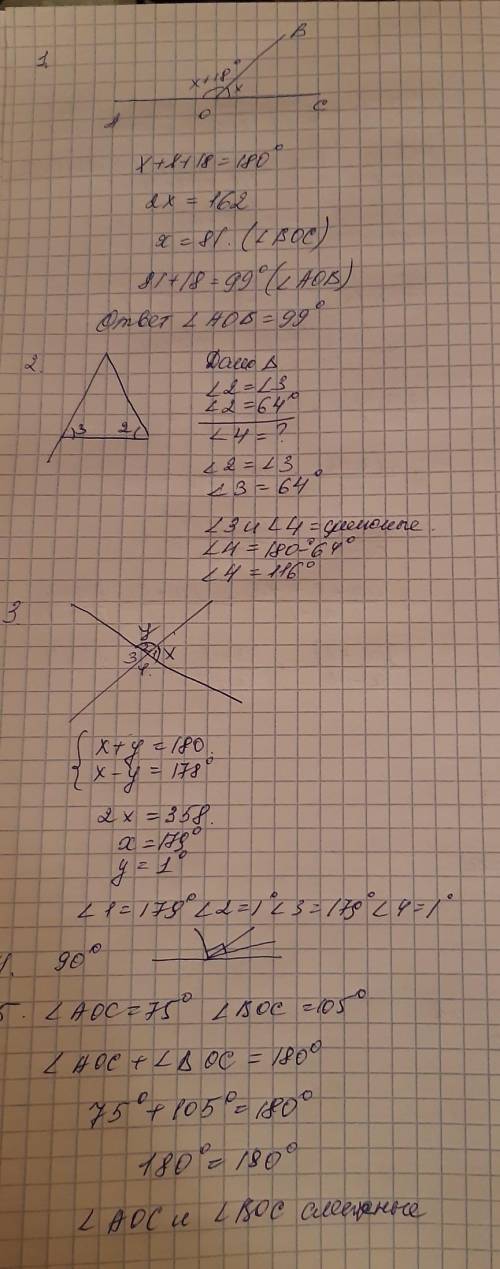 1.
B
x+18°
x
A
O
C
x+x+18=180°
2x = 162
x = 81. (∠BOC)
81+18=99° (∠AOB)
Ответ ∠AOB = 99°
2.
3
2
Дано Δ
∠2=∠3
∠2=64°
∠4=?
∠2=∠3
∠3=64°
∠3 и ∠4 = смежные.
∠4=180°-64°
∠4=116°
3
y
2
3
1
x
4.
{ x+y=180.
x-y=178°
2x=358.
x=179°
y=1°
∠1=179° ∠2=1° ∠3=179° ∠4=1°
4. 90°
5. ∠AOC=75° ∠BOC=105°
∠AOC+∠BOC=180°
75°+105°=180°
180°=180°
∠AOC и ∠BOC смежные